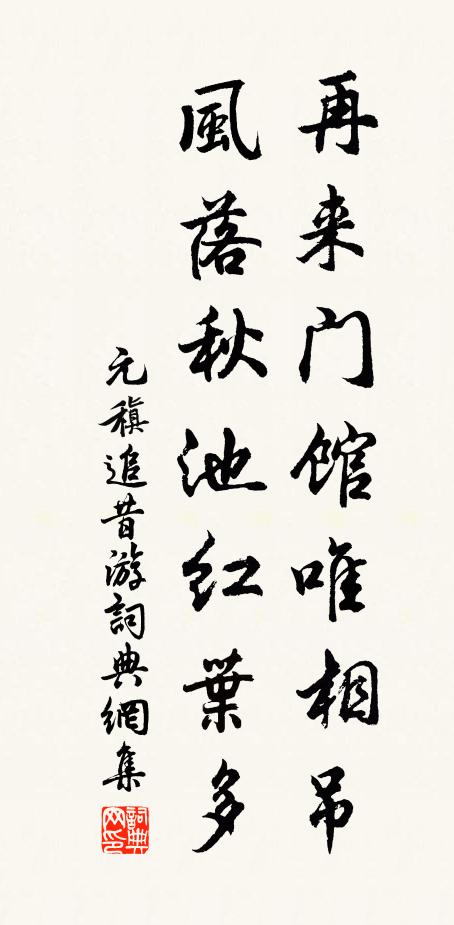 再来门馆唯相吊
風落秋池红葉多
元稹追昔游詞典網集
詞典网印